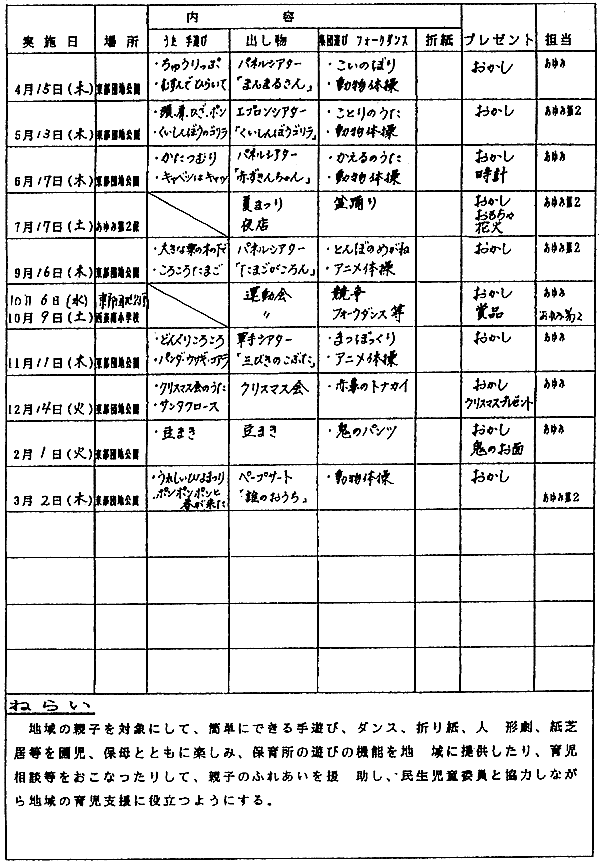 内 容
実施日 場所 うた 手遊び 出し物 集団遊び フォークダンス 折紙 プレゼント 担当
・ちゅうりっぷ パネルシアター ・こいのぼり おかし あゆみ
4月15日(木) 京都団地公園 ・むすんでひらいて 「まんまるさん」 ・動物体操
・頭、肩、ひざ、ポン エプロンシアター ・ことりのうた おかし あゆみ第2
5月13日(木) 京都団地公園 ・くいしんぼうのゴリラ 「くいしんぼうゴリラ」 ・動物体操
・かたつむり パネルシアター ・かえるのうた おかし あゆみ
6月17日(木) 京都団地公園 ・キャベツはキャッ 「赤ずきんちゃん」 ・動物体操 時計
夏まつり 盆踊り おかし あゆみ第2
7月17日(土) あゆみ第2園 夜店 おもちゃ
花火
・大きな栗の木の下で パネルシアター ・とんぼのめがね おかし あゆみ第2
9月16日(木) 京都団地公園 ・ころころたまご 「たまごがころん」 ・アニメ体操
10月6日(水) 運動会 競争 おかし あゆみ
10月9日(土) 小学校 〃 フォークダンス 等 賞品 あゆみ第2
・どんぐりころころ 軍手シアター ・まつぼっくり おかし あゆみ
11月11日(木) 京都団地公園 ・パンダ・ウサギ・コアラ 「三びきのこぶた」 ・アニメ体操
・クリスマス会のうた クリスマス会 ・赤鼻のトナカイ おかし あゆみ
12月14日(火) 京都団地公園 ・サンタクロース クリスマスプレゼント
・豆まき 豆まき ・鬼のパンツ おかし あゆみ
2月1日(火) 京都団地公園 鬼のお面
・うれしいひなまつり ペープサート ・動物体操 おかし
3月2日(木) 京都団地公園 ・ポンポンポンと 「誰のおうち」 あゆみ第2
春が来た
ねらい
地域の親子を対象にして、簡単にできる手遊び、ダンス、折り紙、人 形劇、紙芝
居等を園児、保母とともに楽しみ、保育所の遊びの機能を地 域に提供したり、育児
相談等をおこなったりして、親子のふれあいを援 助し、民生児童委員と協力しなが
ら地域の育児支援に役立つようにする。